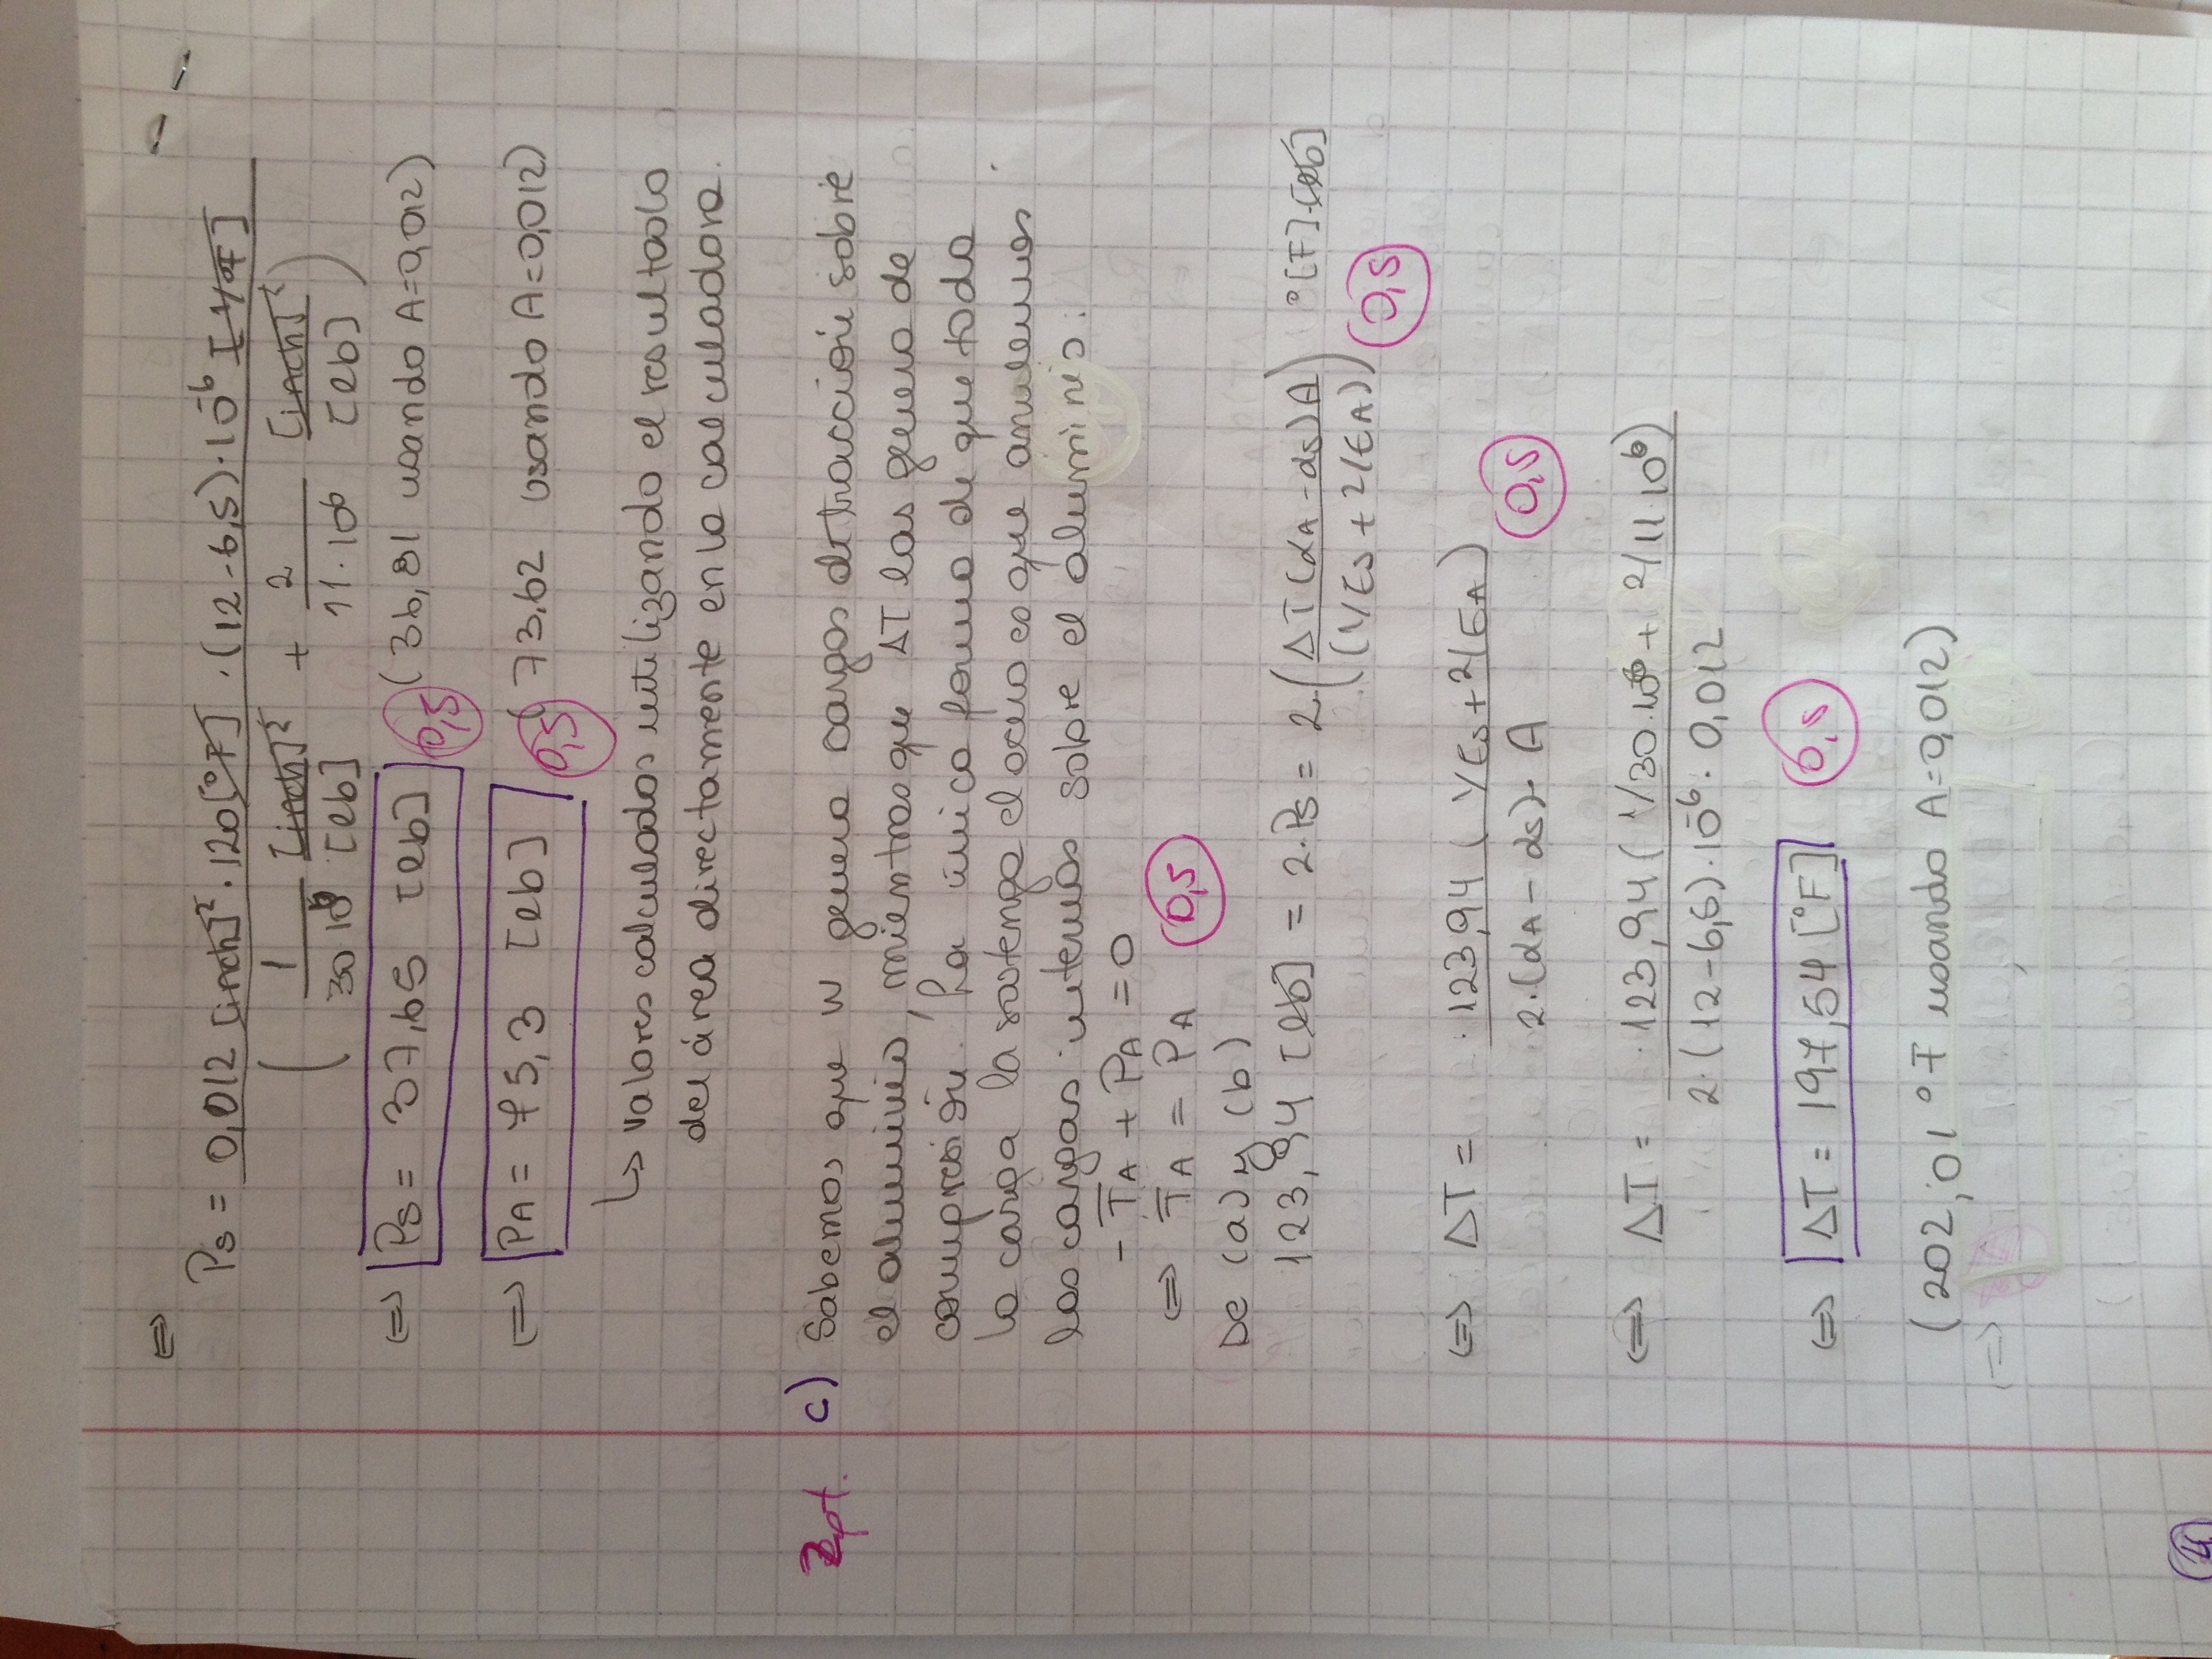 ⇒ Ps = 0,012 [inch]². 120[°F] . (12-6,5).10⁻⁶ [1/°F]
( 1 [inch]² + 2 [inch]² )
30 10⁶ [lb] 11.10⁶ [lb]
⇔ Ps = 37,65 [lb] 0,5 (36,81 usando A=0,012)
⇔ PA = 75,3 [lb] 0,5 (73,62 usando A=0,012)
↳ valores calculados utilizando el resultado
del área directamente en la calculadora.
2pt. c) Sabemos que W genera cargas de tracción sobre
el aluminio, mientras que ΔT las genera de
compresión. La única forma de que toda
la carga la sostenga el acero es que anulemos
las cargas internas sobre el aluminio:
-TA + PA = 0
⇔ TA = PA 0,5
De (a) y (b)
123,94 [lb] = 2.Ps = 2.( ΔT(αA-αs)A ) °[F].[lb]
((1/Es + 2/EA)) 0,5
⇔ ΔT = 123,94 (1/Es + 2/EA)
2.(αA - αs). A 0,5
⇔ ΔT = 123,94 (1/30.10⁶ + 2/11.10⁶)
2.(12-6,5).10⁻⁶. 0,012
⇔ ΔT = 197,54 [°F] 0,5
(202,01 °F usando A=0,012)
4